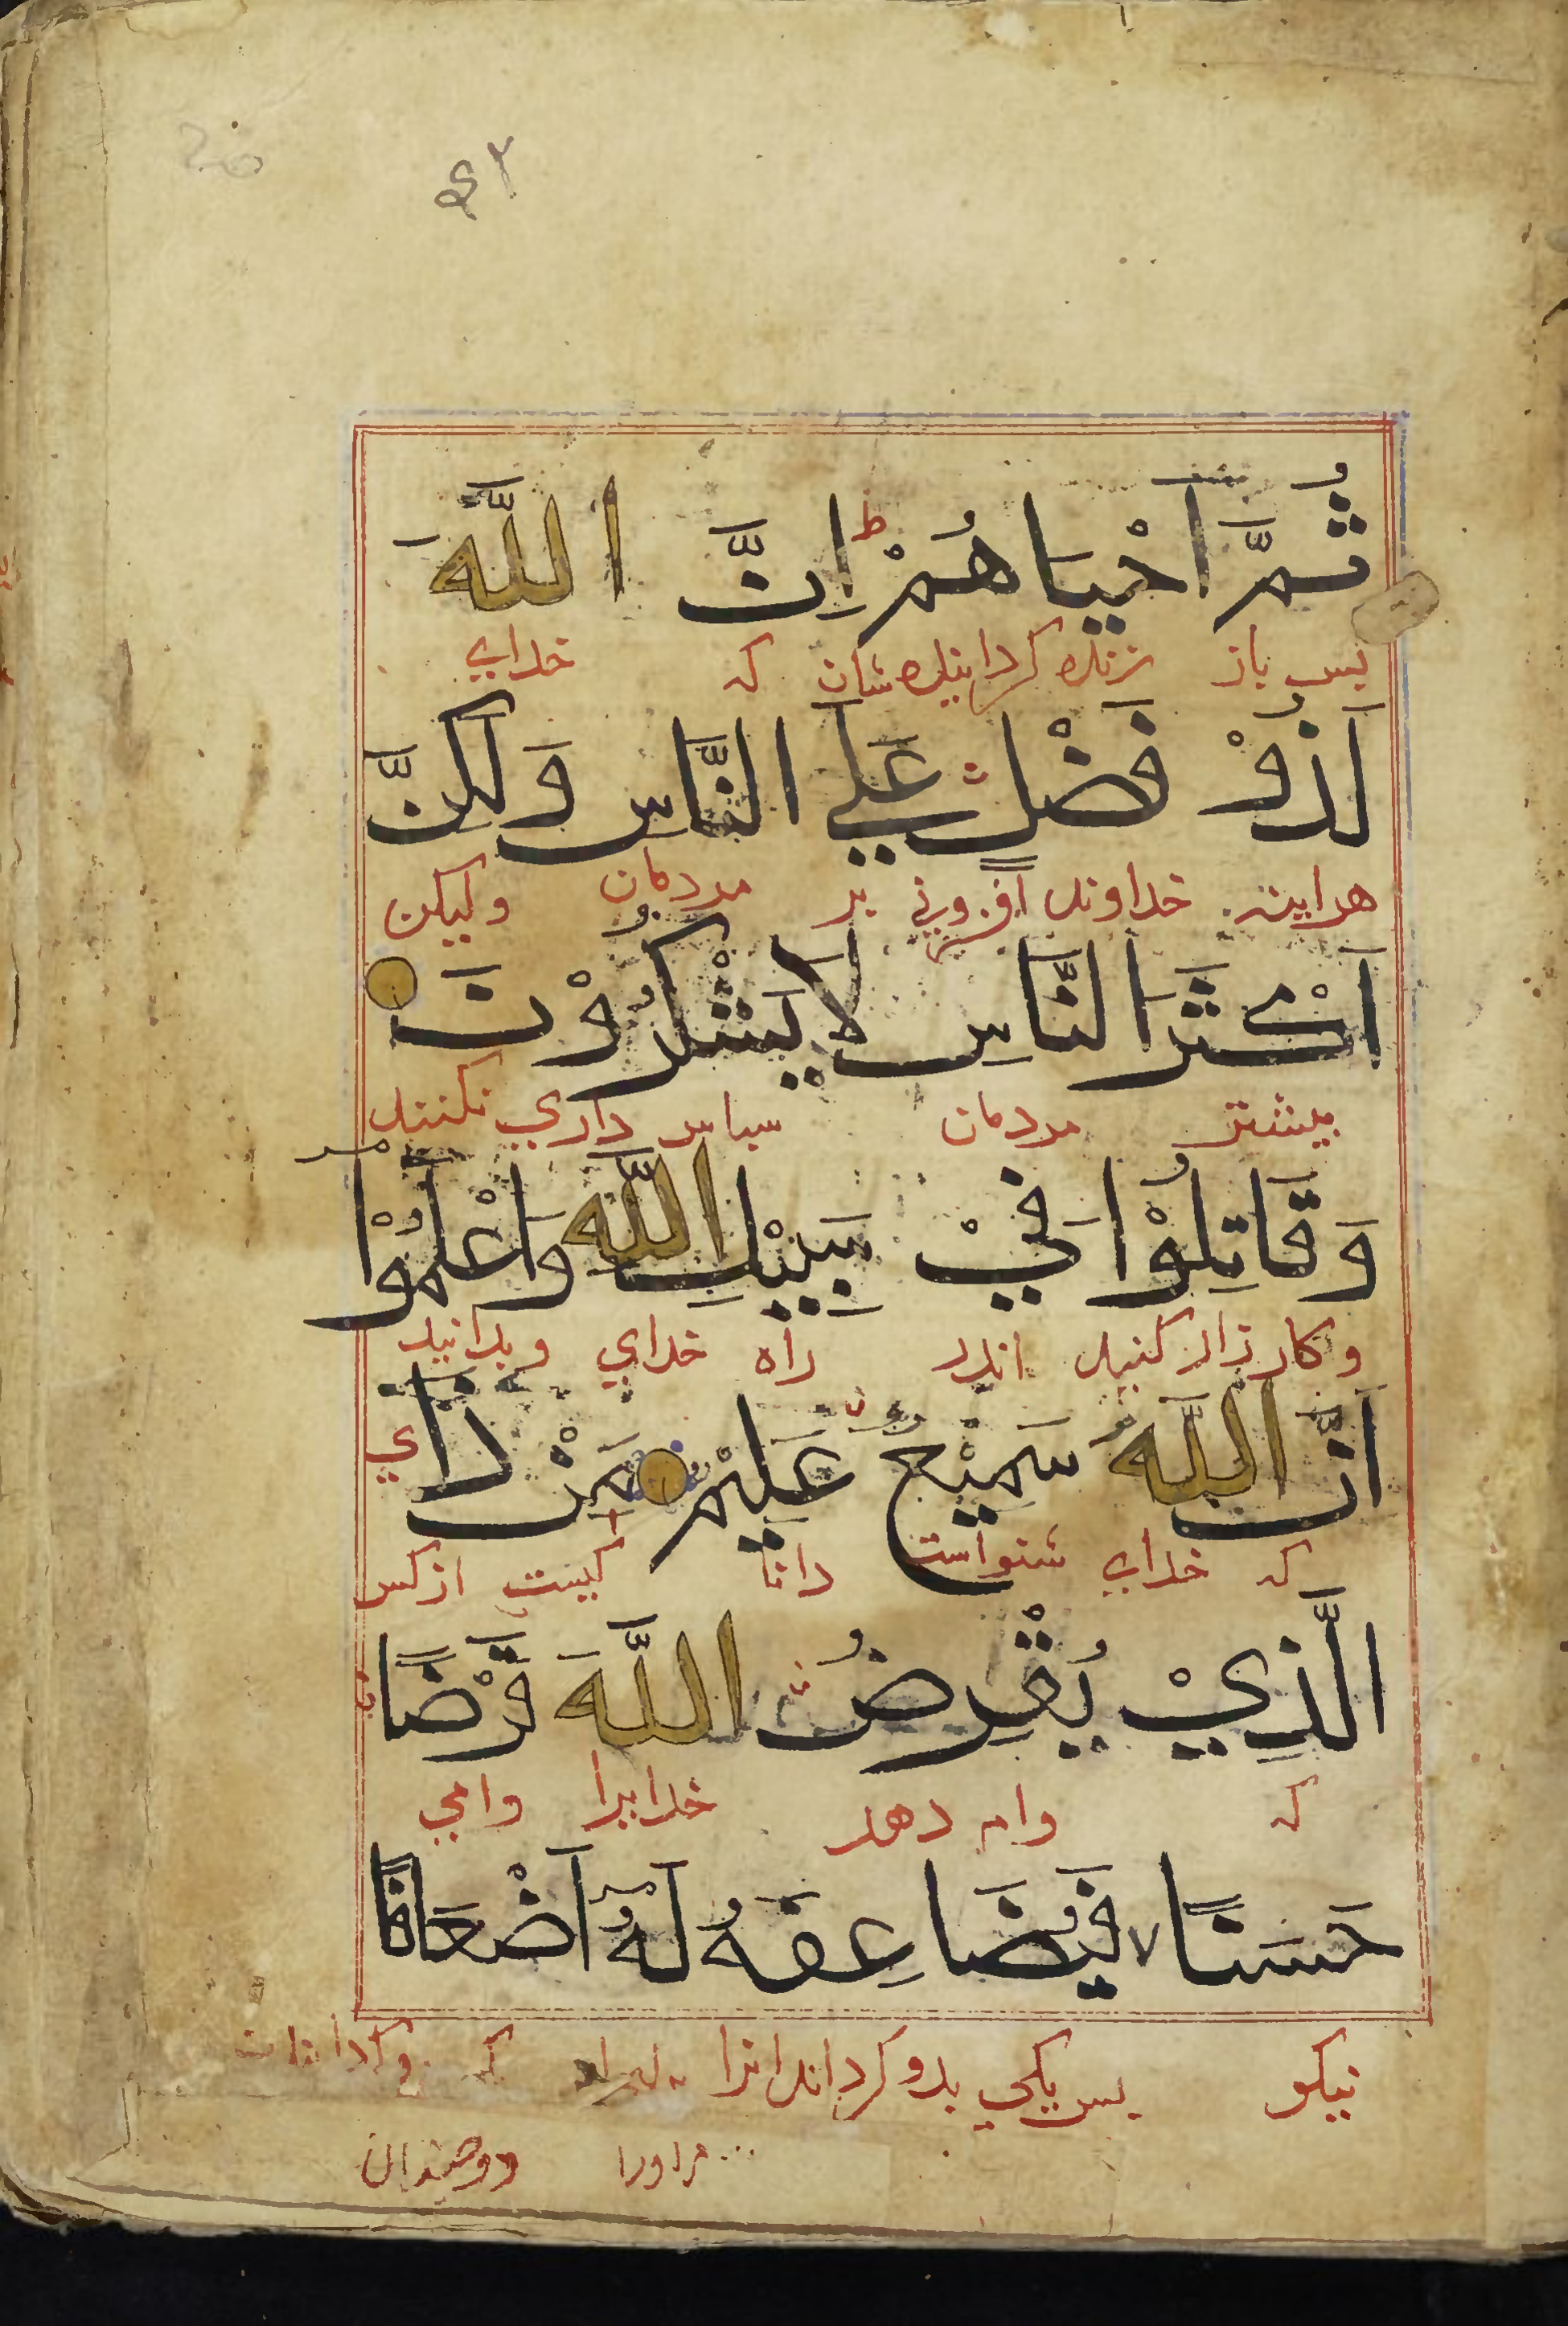 ثُمَّ اَحْيَاهُمْ ط اِنَّ اللّٰهَ
پس باز زنده گردانیدشان که خدای
لَذُوْ فَضْلٍ عَلَي النَّاسِ وَلٰكِنَّ
هرآینه خداوند افزونی بر مردمان ولیکن
اَكْثَرَ النَّاسِ لَا يَشْكُرُوْنَ
بیشتر مردمان سپاس داری نکنند
وَقَاتِلُوْا فِيْ سَبِيْلِ اللّٰهِ وَاعْلَمُوْا
و کارزار کنید اندر راه خدای و بدانید
اَنَّ اللّٰهَ سَمِيْعٌ عَلِيْمٌ مَنْ ذَا
که خدای شنواست دانا کیست از کس
الَّذِيْ يُقْرِضُ اللّٰهَ قَرْضًا
که وام دهد خدایرا وامی
حَسَنًا فَيُضَاعِفَهُ لَهُ اَضْعَافًا
نیکو پس یکی بدو گرداند انرا
مراورا دوچندان